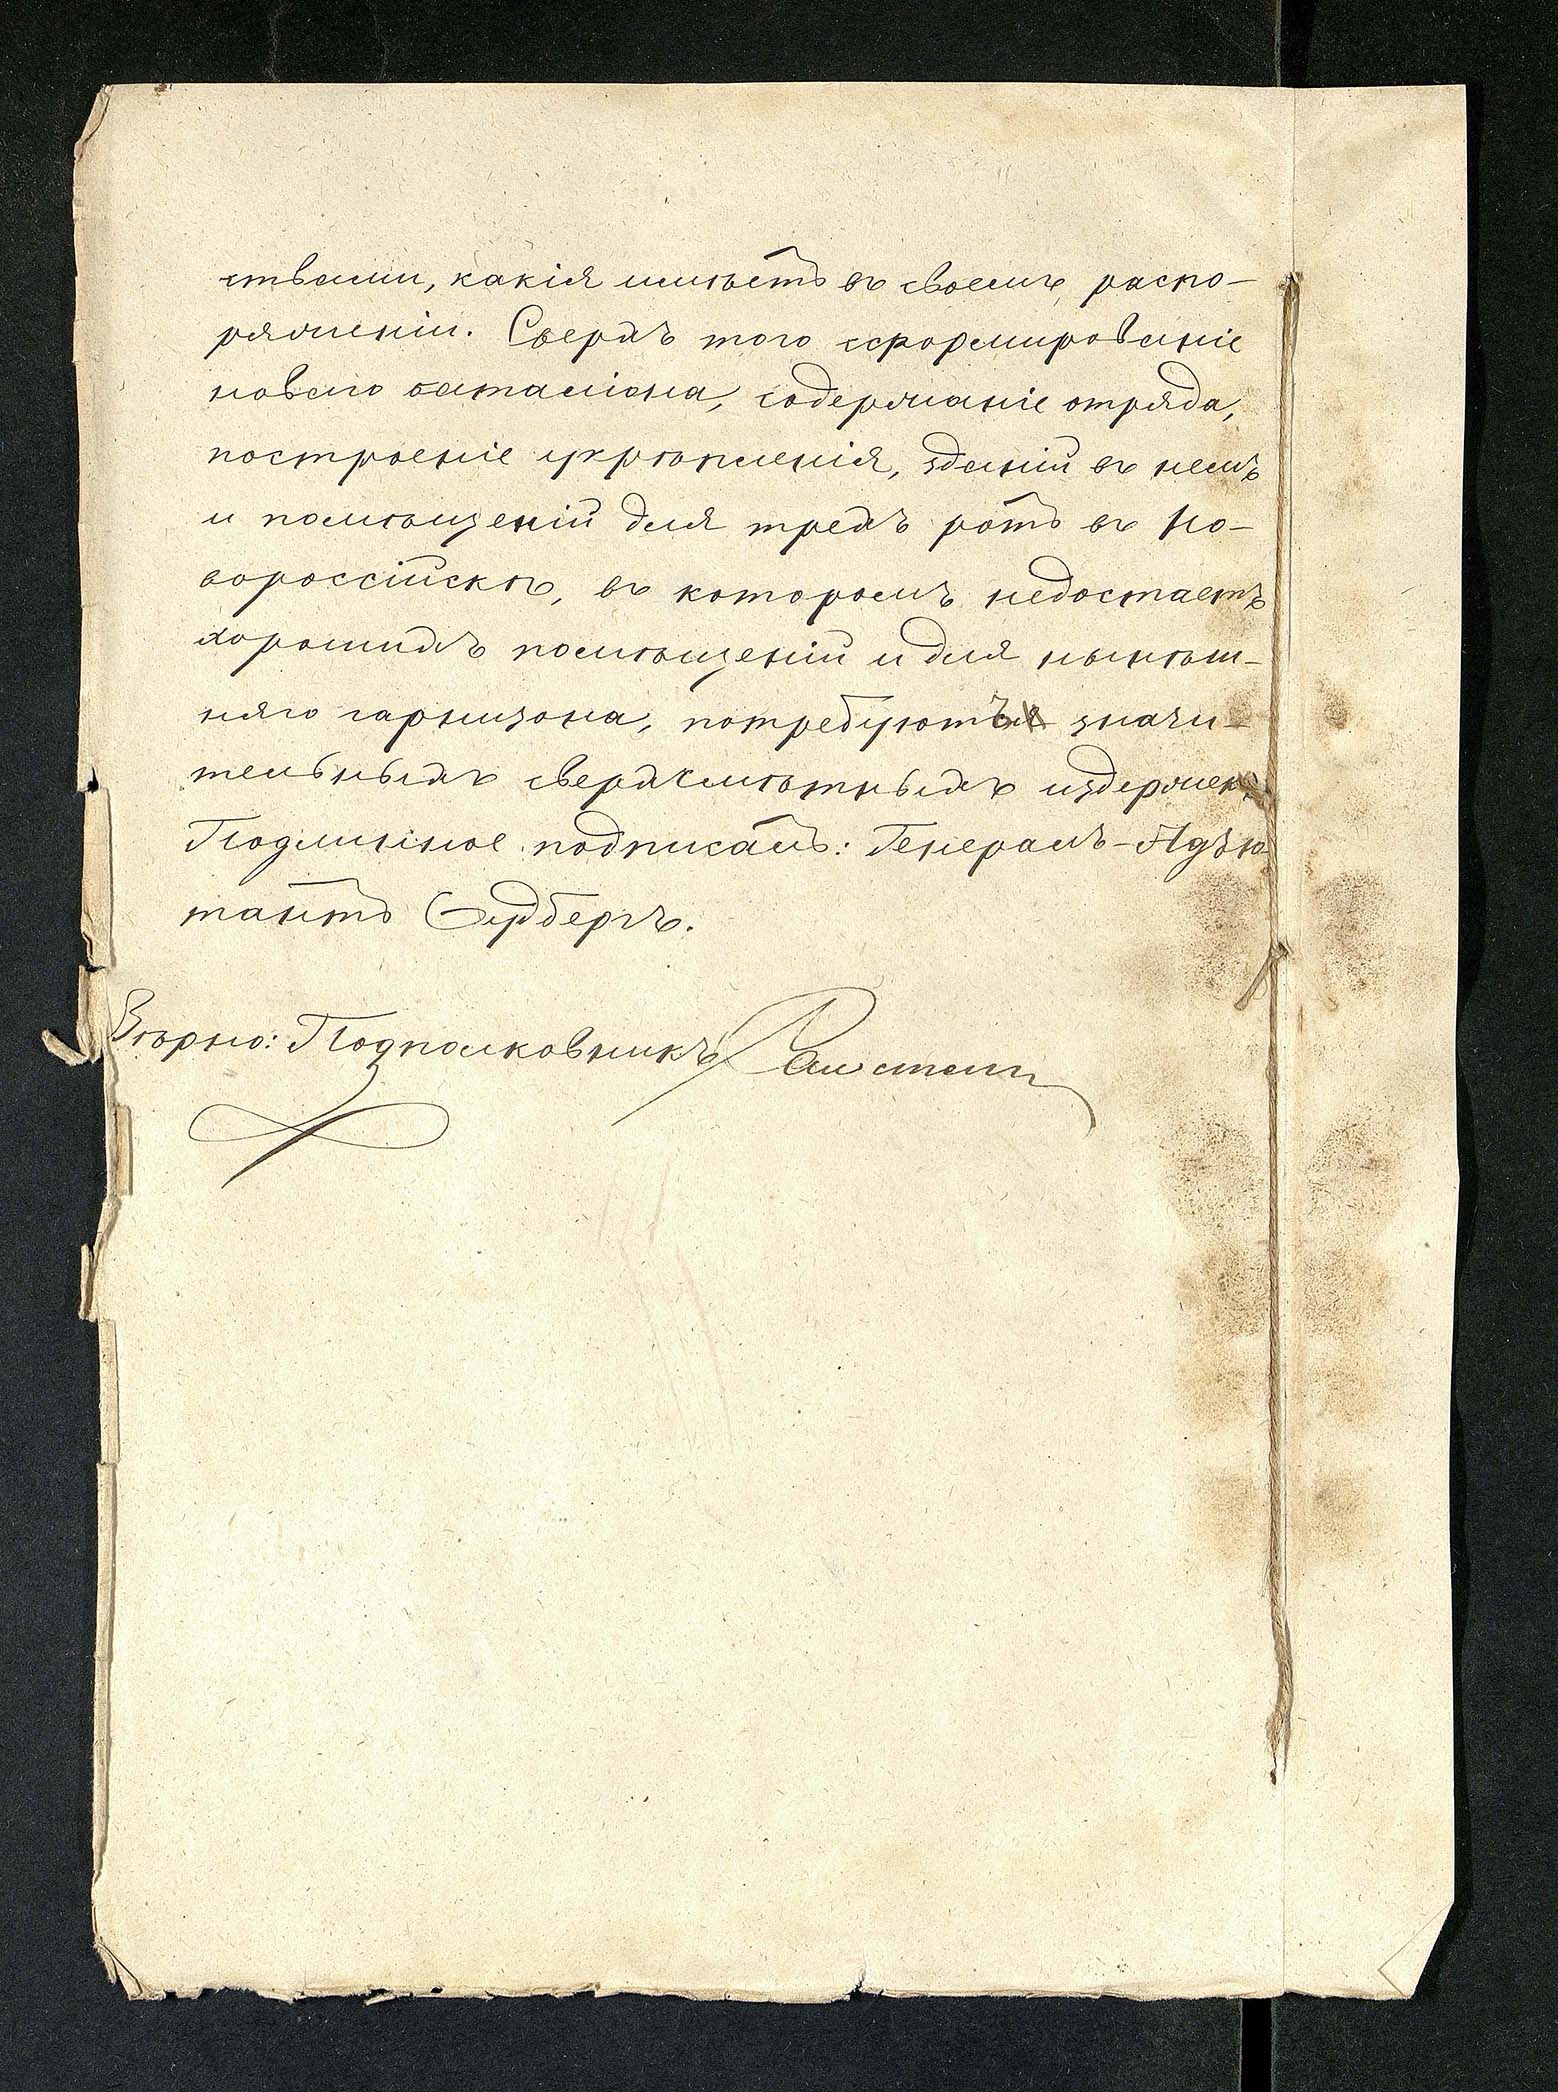 ствами, какія имѣетъ въ своемъ распо-
ряженіи. Сверхъ того сформированіе
новаго баталіона, содержаніе отряда,
построеніе укрѣпленія, зданій въ немъ
и помѣщеній для трехъ ротъ въ Но-
вороссійскѣ, въ которомъ недостаетъ
хорошихъ помѣщеній и для нынѣш-
няго гарнизона, потребуютъ значи-
тельныхъ сверхсмѣтныхъ издержекъ.
Подлинное подписалъ: Генералъ-Адъю-
тантъ Будбергъ.
Вѣрно: Подполковникъ